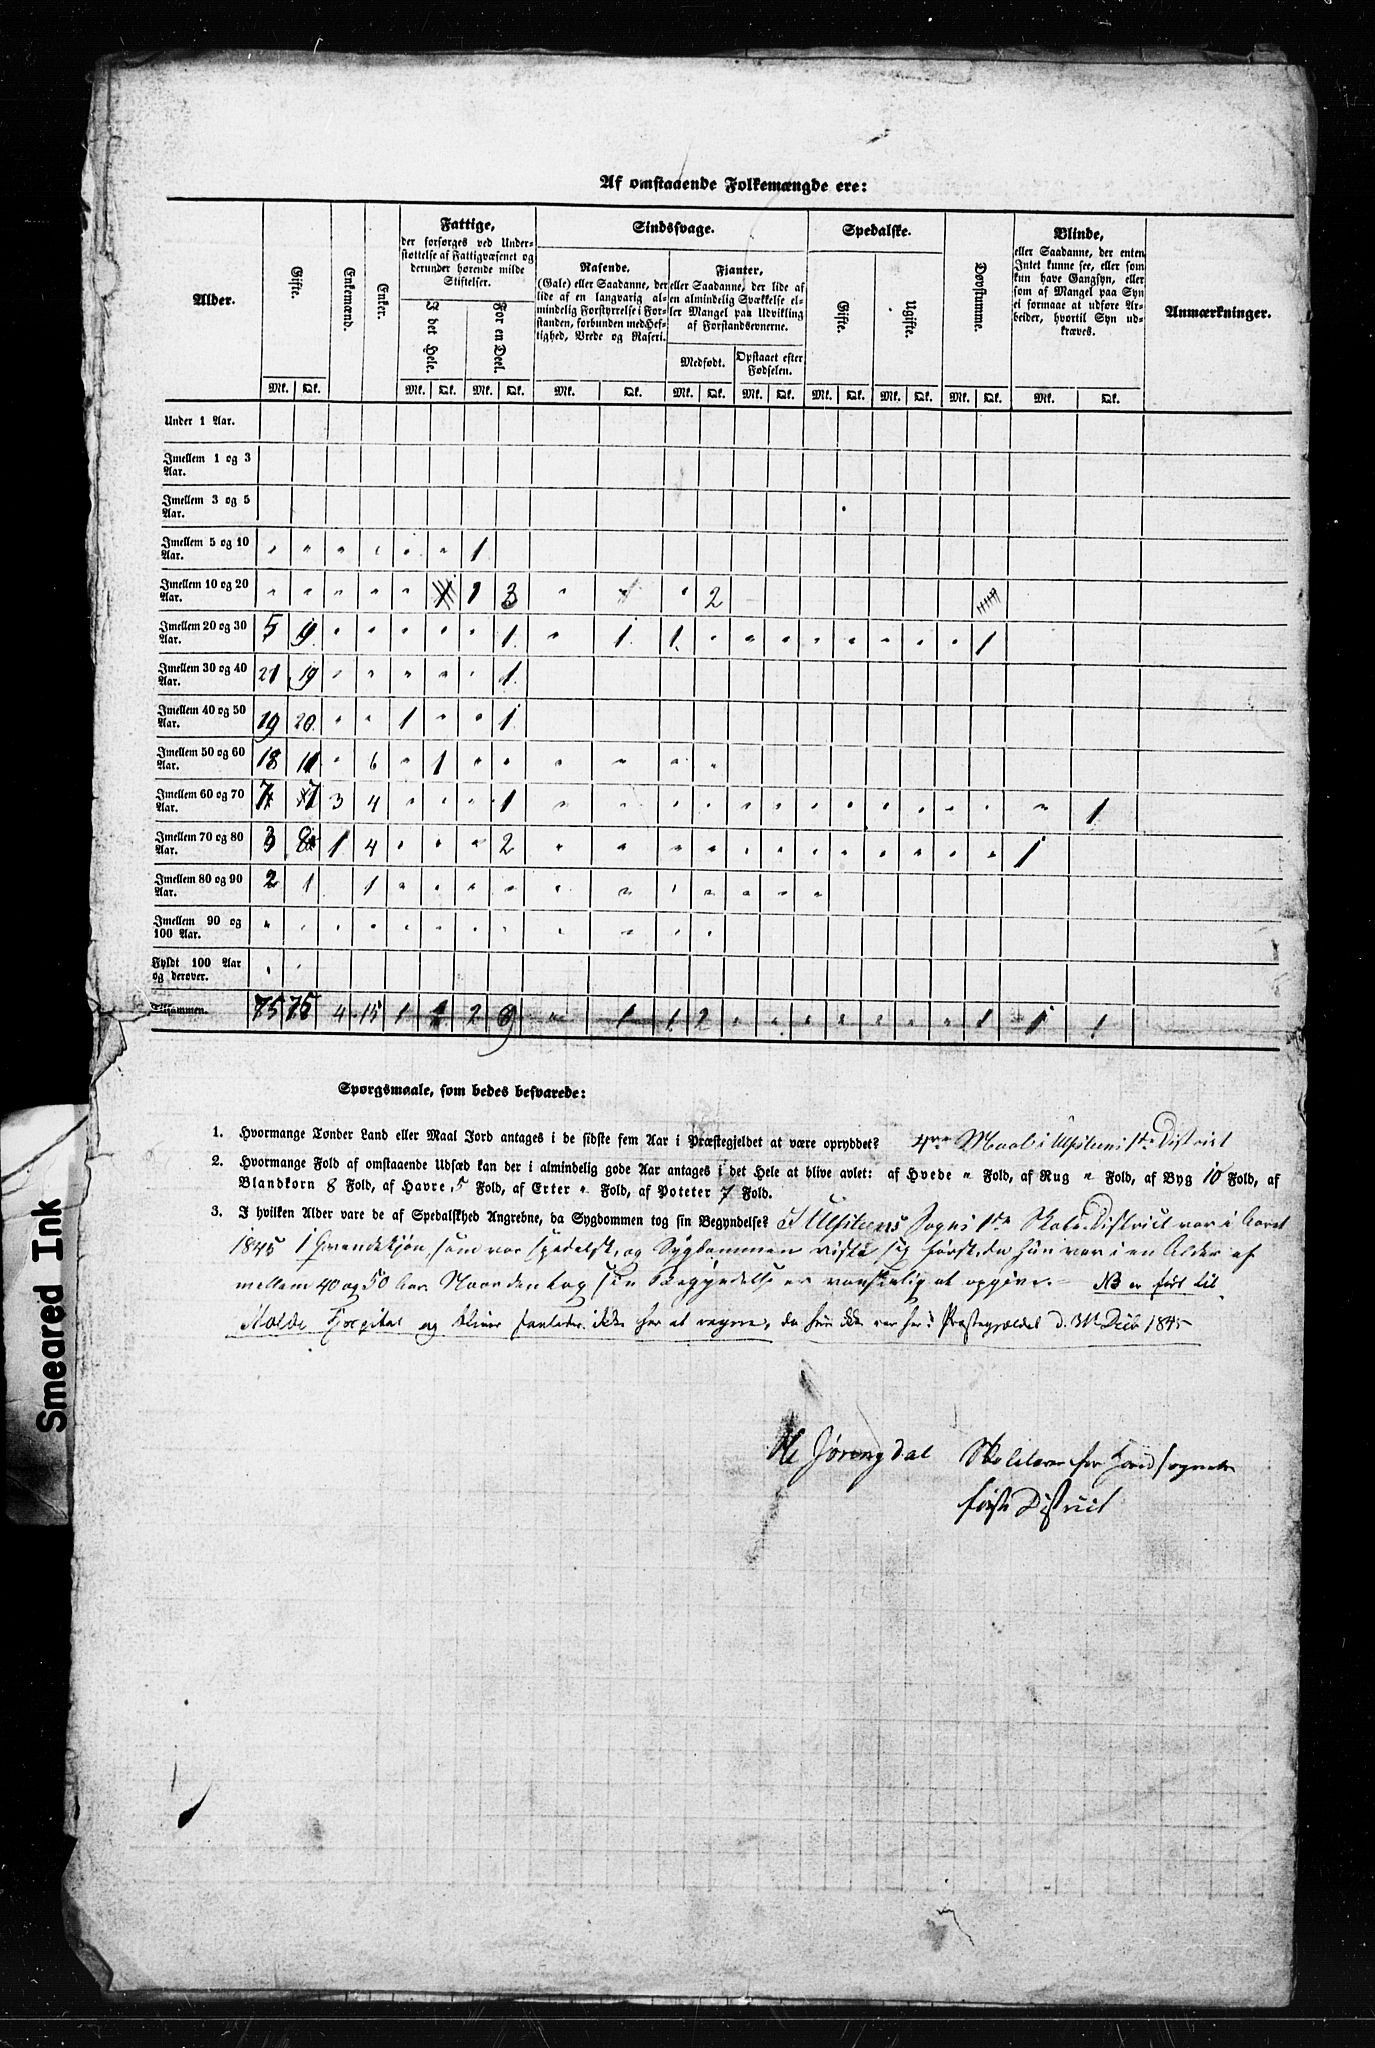 Af omstaaende Folkemængde ere:
Alder.
Gifte.
Enkemænd.
Enker.
Fattige,
der forsørges ved Under-
støttelse af Fattigvæsenet og
derunder hørende milde
Stiftelser.
I det Hele.
For en Deel.
Sindssvage.
Rasende.
(Gale) eller Saadanne, der
lide af en langvarig al-
mindelig Forstyrrelse i For-
standen, forbunden med Hef-
tighed, Vrede og Raseri.
Fjanter,
eller Saadanne, der lide af
en almindelig Svækkelse el-
ler Mangel paa Udvikling
af Forstandsevnerne.
Medfødt.
Opstaaet efter
Fødselen.
Spedalske.
Gifte.
Ugifte.
Døvstumme.
Blinde,
eller Saadanne, der enten
Intet kunne see, eller som
kun have Gangsyn, eller
som af Mangel paa Syn
ei formaae at udføre Ar-
beider, hvortil Syn ud-
kræves.
Anmærkninger.
Mk. Qk. Mk. Qk. Mk. Qk. Mk. Qk. Mk. Qk. Mk. Qk. Mk. Qk. Mk. Qk. Mk. Qk. Mk. Qk.
Under 1 Aar.
Imellem 1 og 3
Aar.
Imellem 3 og 5
Aar.
Imellem 5 og 10 " " " " " " 1
Aar.
Imellem 10 og 20 " " " " " 1 3 " " 2
Aar.
Imellem 20 og 30 5 19 " " " " " 1 " 1 1 " " " " " " " " 1
Aar.
Imellem 30 og 40 21 19 " " " " " 1
Aar.
Imellem 40 og 50 19 20 " " 1 " " 1
Aar.
Imellem 50 og 60 18 11 " 6 " 1 " " " " " "
Aar.
Imellem 60 og 70 7 7 3 4 " " " 1 " " " " " " " " " " " " " 1
Aar.
Imellem 70 og 80 3 8 1 4 " " " 2 " " " " " " " " " " " " 1
Aar.
Imellem 80 og 90 2 1 1 " " " " " " " " " " "
Aar.
Imellem 90 og " " " " " " " " " " " "
100 Aar.
Fyldt 100 Aar " "
og derover.
Tilsammen. 75 75 4 15 1 1 2 9 " 1 1 2 " " " " " " " 1 1 1
Spørgsmaale, som bedes besvarede:
1. Hvormange Tønder Land eller Maal Jord antages i de sidste fem Aar i Præstegjeldet at være opryddet? 4re Maal i Ulfsteens 1ste District
2. Hvormange Fold af omstaaende Udsæd kan der i almindelig gode Aar antages i det Hele at blive avlet: af Hvede " Fold, af Rug " Fold, af Byg 10 Fold, af
Blandkorn 8 Fold, af Havre 5 Fold, af Erter " Fold, af Poteter 7 Fold.
3. I hvilken Alder vare de af Spedalskhed Angrebne, da Sygdommen tog sin Begyndelse? I Ulfsteens Sogns 1ste Skole-District var i Aaret
1845 1 Qvindekjøn, som var spedalsk, og Sygdommen viste sig først, da hun var i en Alder af
mellem 40 og 50 Aar. Naar den tog sin Begyndelse er vanskelig at opgive. NB er ført til
Molde Hospital og bliver saaledes ikke her at regne, da hun ikke var her i Præstegjeldet d. 31te Decb 1845
Ole Jørengdal Skolelærer for Hovedsognets
første District
Smeared Ink